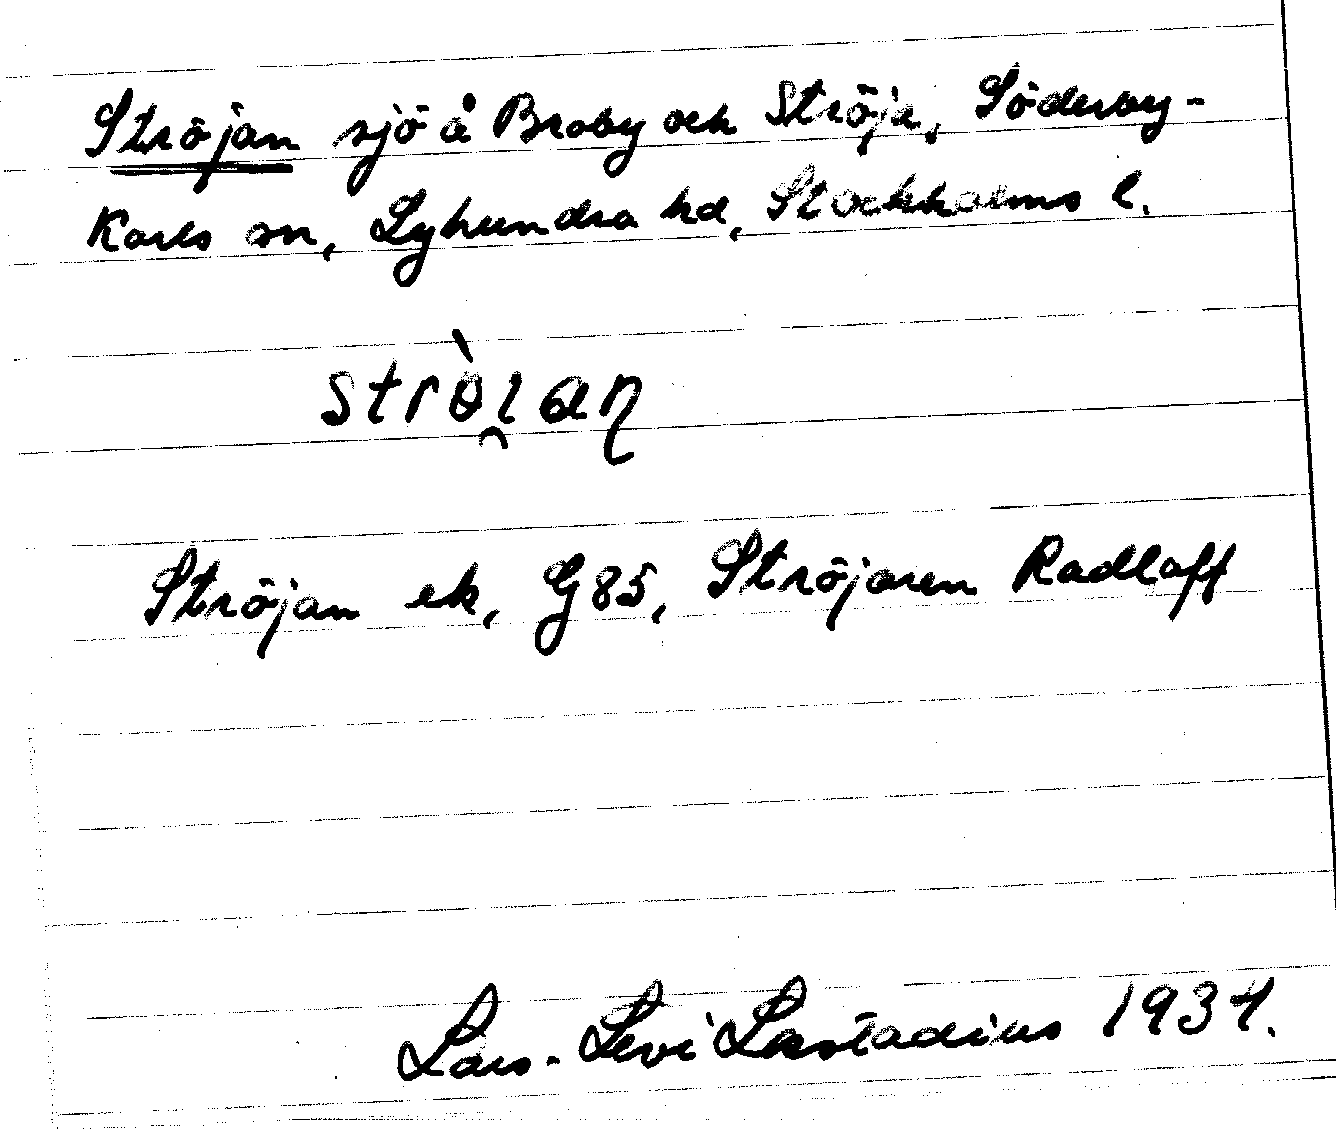 Ströjan sjö å Broby och Ströja, Söderby-
Karls sn, Lyhundra hd, Stockholms l.
strö̀i̯aɳ
Ströjan ek, G85, Ströjaren Radloff
Lars-Levi Læstadius 1934.